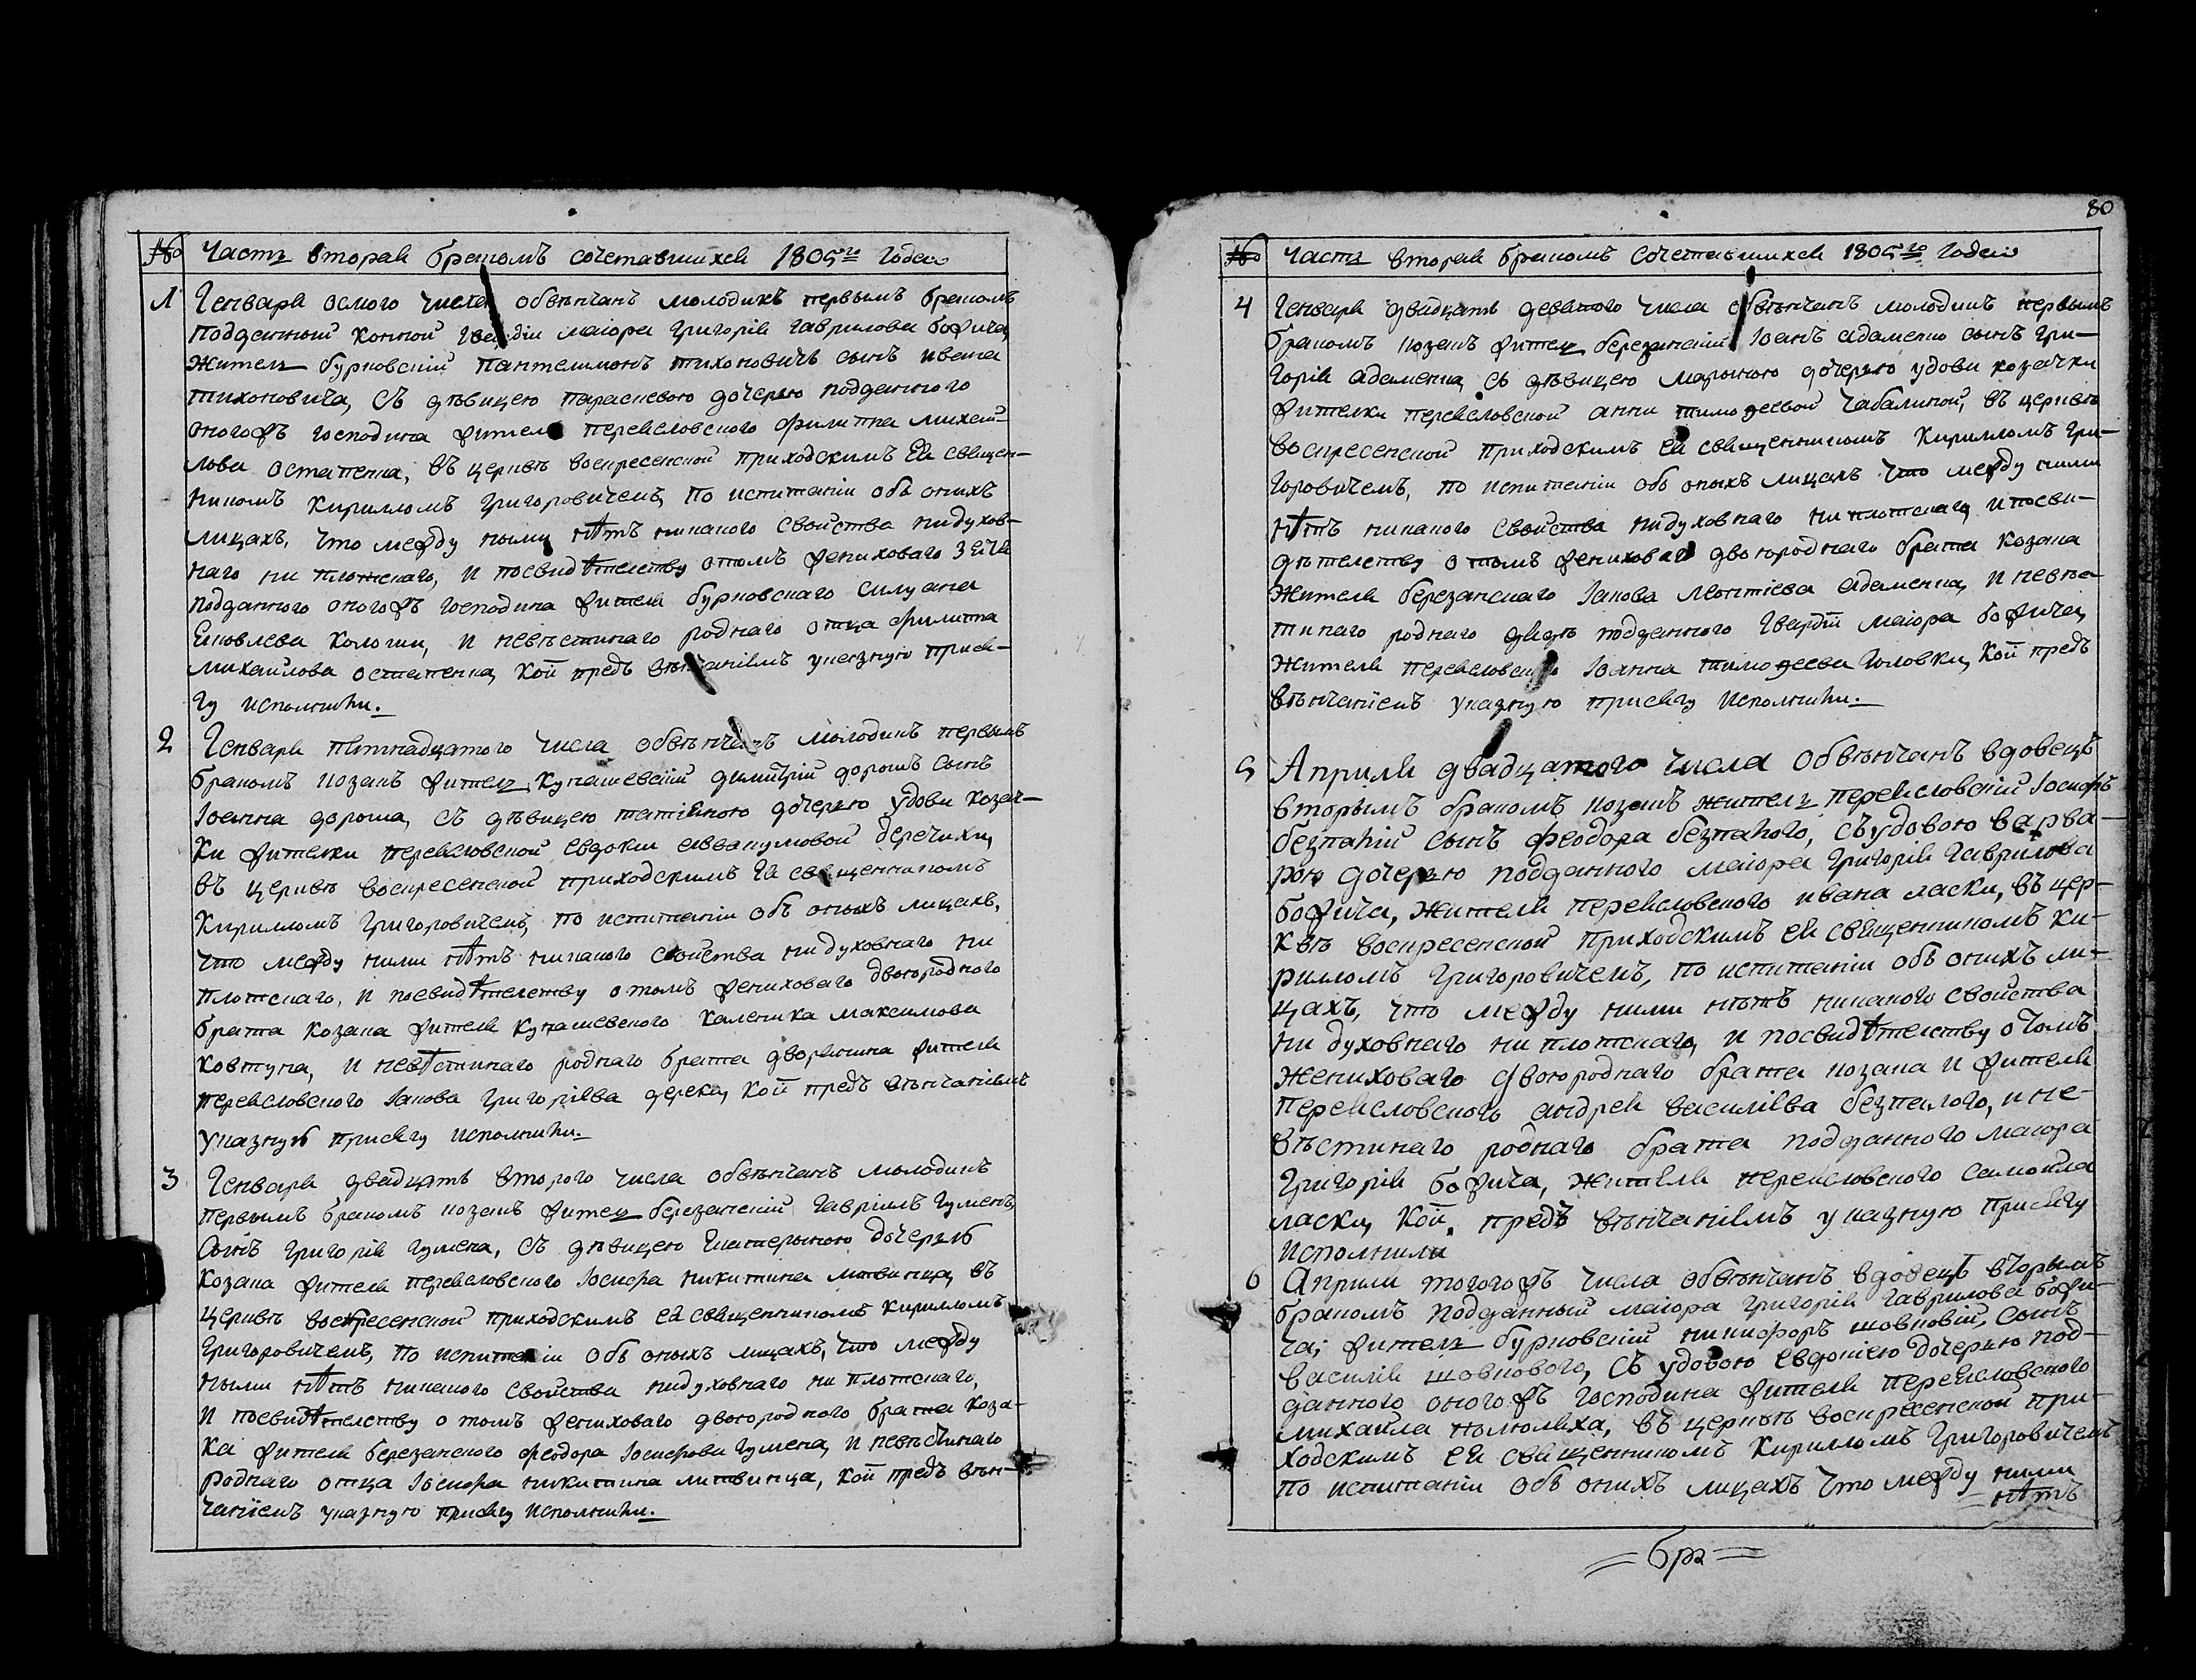 № Часть вторая бракомъ сочетавшихся 1805го Года
1 Генваря осмого числа обвѣнчанъ молодикъ первымъ бракомъ
подданный конной гвардіи маіора Григорія Гаврилова божича,
житель бурковскій пантелимонъ тихоновичъ сынъ ивана
тихоновича, съ дѣвицею параскевою дочерью подданного
оногожъ господина жителя переясловского филиппа михай-
лова остапенка, въ церквѣ воскресенской приходскимъ Ея священ-
никомъ Кирилломъ Григоровичемъ, по испитаніи объ онихъ
лицахъ, что между ними нѣтъ никакого свойства ни духов-
наго ни плотскаго, и посвидѣтелству отомъ жениховаго зятя
подданного оногожъ господина жителя бурковскаго силуана
Еяковлева кологии, и невѣстинаго роднаго отца филиппа
михайлова остапенка, кои предъ вѣнчаніемъ указную прися-
гу исполнили.
2 Генваря пятнадцатого числа обвѣнчанъ молодикъ первымъ
бракомъ козакъ житель кулашевскій димитрій дорошъ сынъ
Іоанна дороша, съ дѣвицею татіяною дочерью удови козач-
ки жителки переясловской евдокіи аввакумовой деречихи,
въ церквѣ воскресенской приходскимъ Ея священникомъ
Кирилломъ Григоровичемъ, по испитаніи объ онихъ лицахъ,
что между ними нѣтъ никакого свойства ни духовнаго ни
плотскаго, и посвидѣтелству отомъ жениховаго двоюродного
брата козака жителя кулашевского каленика максимова
ковтуна, и невѣстинаго роднаго брата дворянина жителя
переясловского Іакова григоріева дереки, кои предъ вѣнчаніемъ
указную присягу исполнили.
3 Генваря двадцать второго числа обвѣнчанъ молодикъ
первымъ бракомъ козакъ житель березанскій гавріилъ гуменъ,
сынъ григорія гумена, съ дѣвицею екатериною дочерью
козака жителя переясловского Іосифа никитина литвинца, въ
церквѣ воскресенской приходскимъ ея священникомъ кирилломъ
Григоровичемъ, по испитаніи объ онихъ лицахъ, что между
ними нѣтъ никакого свойства ни духовнаго ни плотскаго,
и посвидѣтелству отомъ жениховаго двоюродного брата коза-
ка жителя березанского феодора Іосифова гумена, и невѣстинаго
роднаго отца Іосифа никитина литвинца, кои предъ вѣн-
чаніемъ указную присягу исполнили.
80
№ Часть вторая бракомъ сочетавшихся 1805го Года
4 Генваря двадцать девятого числа обвѣнчанъ молодикъ первымъ
бракомъ козакъ житель березанскій Іоанъ адаменко сынъ гри-
горія адаменка, съ дѣвицею мариною дочерью удови козачки
жителки переясловской анни тимофеевой чабалиной, въ церквѣ
воскресенской приходскимъ ея священникомъ Кирилломъ Гри-
горовичемъ, по испитаніи объ онихъ лицахъ что между ними
нѣтъ никакого свойства ни духовнаго ни плотскаго, и посви-
дѣтелству отомъ жениховаго двоюроднаго брата козака
жителя березанскаго Іакова леонтіева адаменка, и невѣс-
тинаго роднаго дяди подданного гвардіи маіора божича,
жителя переясловского Іоанна тимофеева головки, кои предъ
вѣнчаніемъ указную присягу исполнили.
5 Апрѣля двадцатого числа обвѣнчанъ вдовецъ
вторымъ бракомъ козакъ житель переясловскій Іосифъ
безпалій сынъ феодора безпалого, съ удовою варва-
рою дочерью подданного маіора Григорія Гаврилова
божича, жителя переясловского ивана ласки, въ цер-
квѣ воскресенской приходскимъ ея священникомъ ки-
рилломъ Григоровичемъ, по испитаніи объ онихъ ли-
цахъ, что между ними нѣтъ никакого свойства
ни духовнаго ни плотскаго, и посвидѣтелству отомъ
жениховаго двоюроднаго брата козака и жителя
переясловского андрея василіева безпалого, и не-
вѣстинаго роднаго брата подданного маіора
Григорія божича, жителя переясловского самоила
ласки, кои предъ вѣнчаніемъ указную присягу
исполнили
6 Апрѣля тогогожъ числа обвѣнчанъ вдовецъ вторымъ
бракомъ подданный маіора григорія гаврилова божи-
ча, житель бурковскій никифоръ шовковій, сынъ
василія шовкового, съ удовою евдокіею дочерью под-
данного оногожъ господина жителя переясловского
михайла колюлиха, въ церквѣ воскресенской при-
ходскимъ ея священникомъ Кирилломъ Григоровичемъ
по испитаніи объ онихъ лицахъ что между ними
нѣтъ